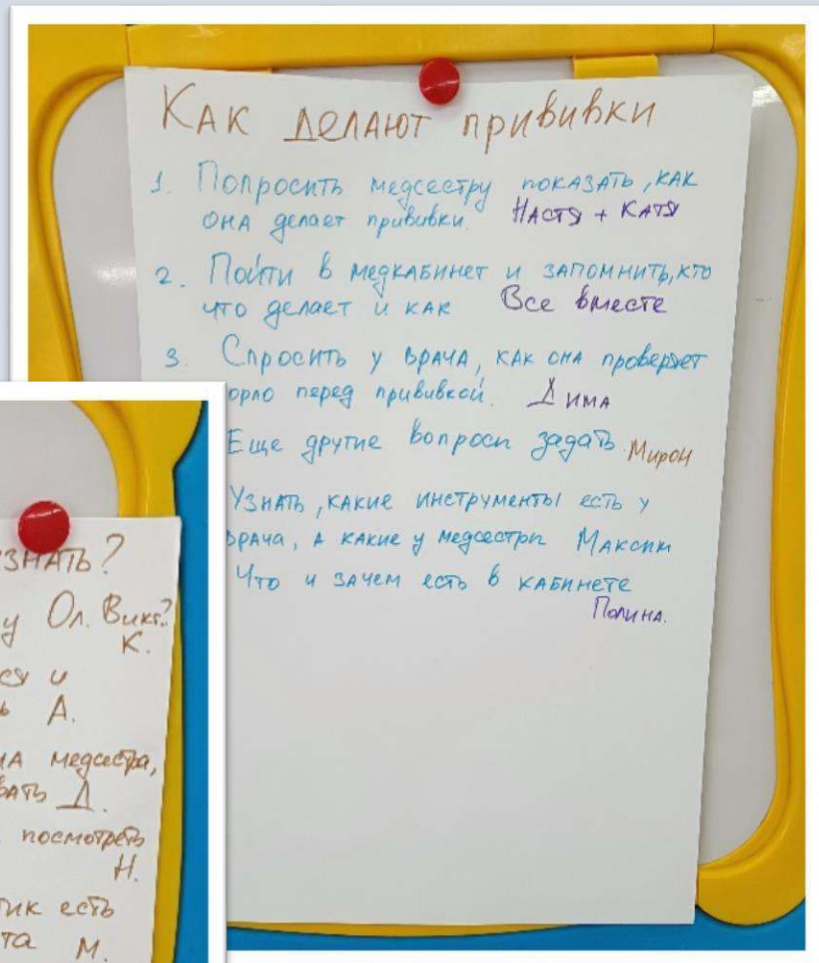 Как делают прививки
1. Попросить медсестру показать, как
она делает прививки. Настя + Катя
2. Пойти в медкабинет и запомнить, кто
что делает и как Все вместе
3. Спросить у врача, как она проверяет
орло перед прививкой. Дима
Еще другие вопросы задать. Мирон
Узнать, какие инструменты есть у
врача, а какие у медсестры Максим
Что и зачем есть в кабинете
Полина.
знать?
у Ол. Викт.?
К.
ся и
ь А.
на медсестра,
вать Д.
посмотреть
Н.
тик есть
та М.